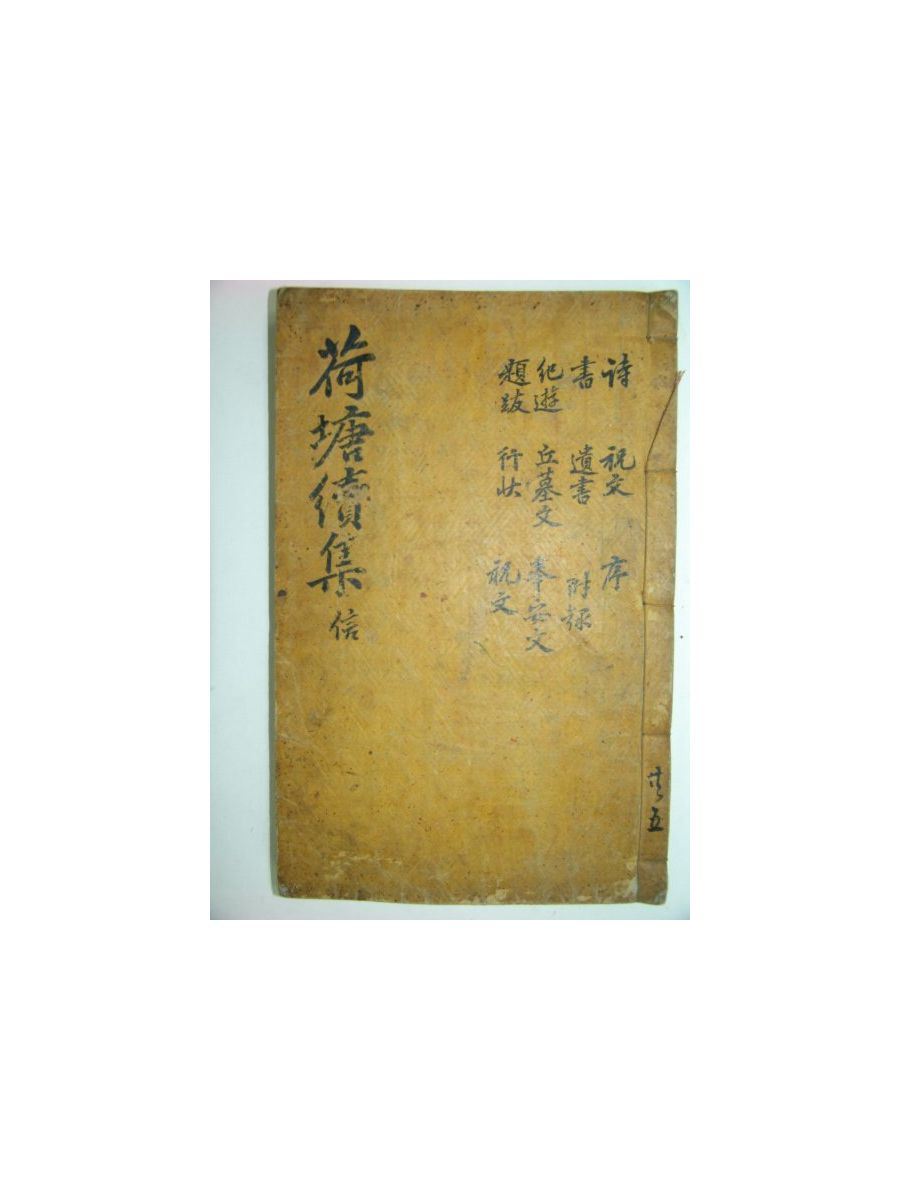 荷塘續集 信
詩 祝文 序
書 遺書 附錄
紀遊 丘墓文 奉安文
題跋 行狀 祝文
共五